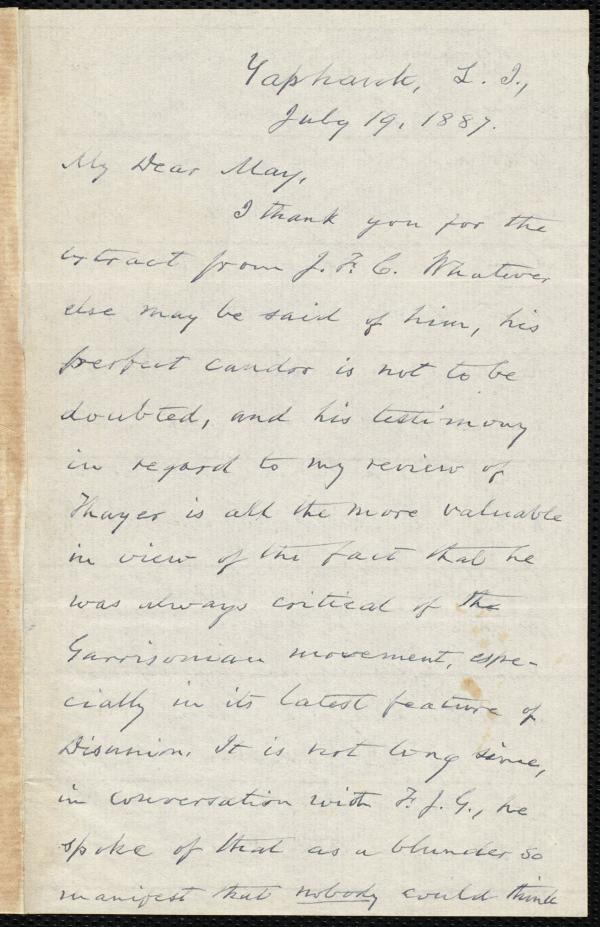 Yaphank, L. I.,
July 19, 1887.
My Dear May,
I thank you for the
extract from J. F. C. Whatever
else may be said of him, his
perfect candor is not to be
doubted, and his testimony
in regard to my review of
Thayer is all the more valuable
in view of the fact that he
was always critical of the
Garrisonian movement, espe-
cially in its latest feature of
Disunion. It is not long since,
in conversation with F. J. G., he
spoke of that as a blunder so
manifest that nobody could think